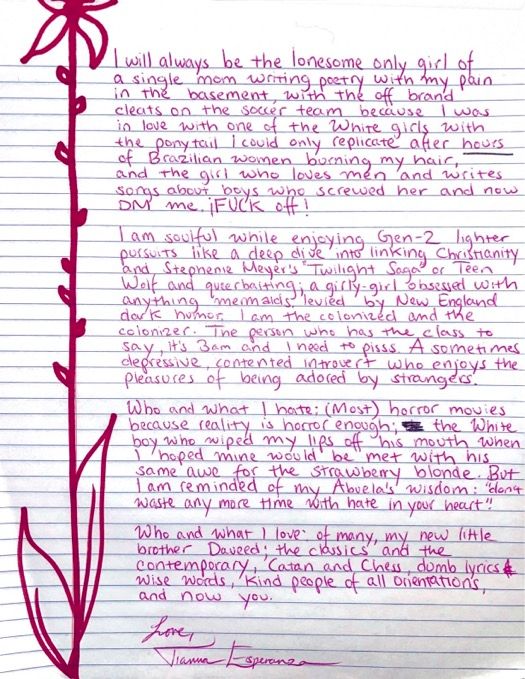 I will always be the lonesome only girl of
a single mom writing poetry with my pain
in the basement, with the off brand
cleats on the soccer team because I was
in love with one of the White girls with
the ponytail I could only replicate after hours
of Brazilian women burning my hair,
and the girl who loves men and writes
songs about boys who screwed her and now
DM me. ¡FUCK off!
I am soulful while enjoying Gen-Z lighter
pursuits like a deep dive into linking Christianity
and Stephenie Meyer's "Twilight Saga" or Teen
Wolf and queerbaiting; a girly-girl obsessed with
anything "mermaids" levied by New England
dark humor. I am the colonized and the
colonizer. The person who has the class to
say, it's 3am and I need to pisss. A sometimes
depressive, contented introvert who enjoys the
pleasures of being adored by strangers.
Who and what I hate: (Most) horror movies
because reality is horror enough; the White
boy who wiped my lips off his mouth when
I hoped mine would be met with his
same awe for the strawberry blonde. But
I am reminded of my Abuela's wisdom: "don't
waste any more time with hate in your heart"!
Who and what I love: of many, my new little
brother Daveed; the classics and the
contemporary, Catan and Chess, dumb lyrics &
wise words, Kind people of all orientations,
and now you.
Love,
Tianna Esperanza